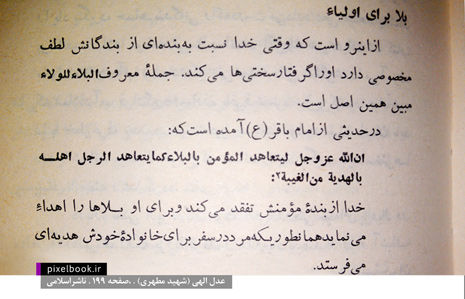 بلا برای اولیاء
ازاینرو است که وقتی خدا نسبت به‌بنده‌ای از بندگانش لطف
مخصوصی دارد اوراگرفتارسختی‌ها می‌کند. جملهٔ معروف البلاءللولاء
مبین همین اصل است.
درحدیثی ازامام باقر(ع)آمده است‌که:
ان‌الله عزوجل لیتعاهد المؤمن بالبلاءکمایتعاهد الرجل اهلـه
بالهدیة من‌الغیبة۲:
خدا ازبندهٔ مؤمنش تفقد می‌کند وبرای او بـلاها را اهداء
می‌نمایدهمانطوریکه‌مرددرسفربرای‌خانوادهٔ‌خودش هدیه‌ای
می‌فرستد.
pixelbook.ir
عدل الهی (شهید مطهری) . صفحه ۱۹۹ . ناشراسلامی